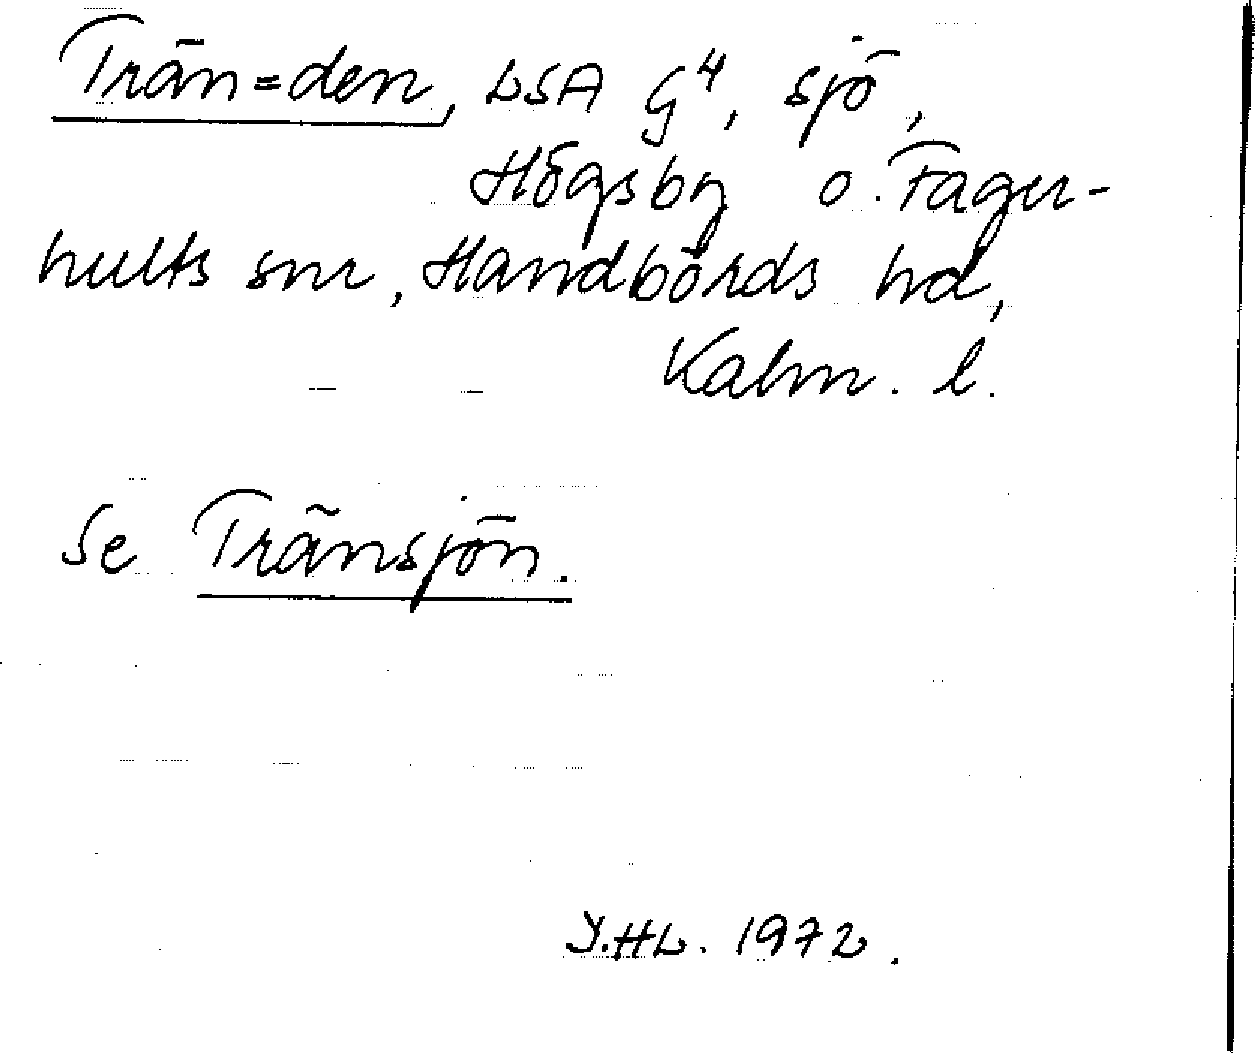 Trän=den, LSA G4, sjö,
Högsby o. Fager-
hults snr, Handbörds hd,
Kalm. l.
Se Tränsjön.
Y.HL. 1972.